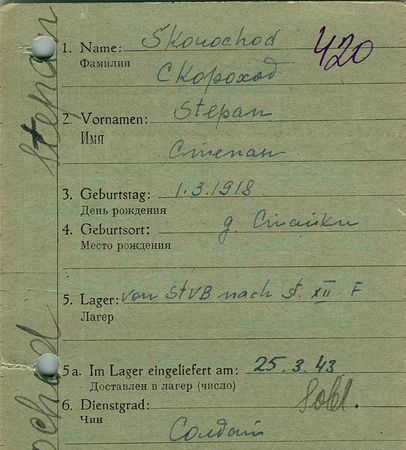 420
1. Name: Skorochod
Фамилия Скороход
2. Vornamen: Stepan
Имя Степан
3. Geburtstag: 1.3.1918
День рождения
4. Geburtsort: д. Стайки
Место рождения
5. Lager: von St VB nach St. XII F
Лагер
5a. Im Lager eingeliefert am: 25.3.43
Доставлен в лагер (число)
6. Dienstgrad: Sold.
Чин Солдат
Stepan
ochod